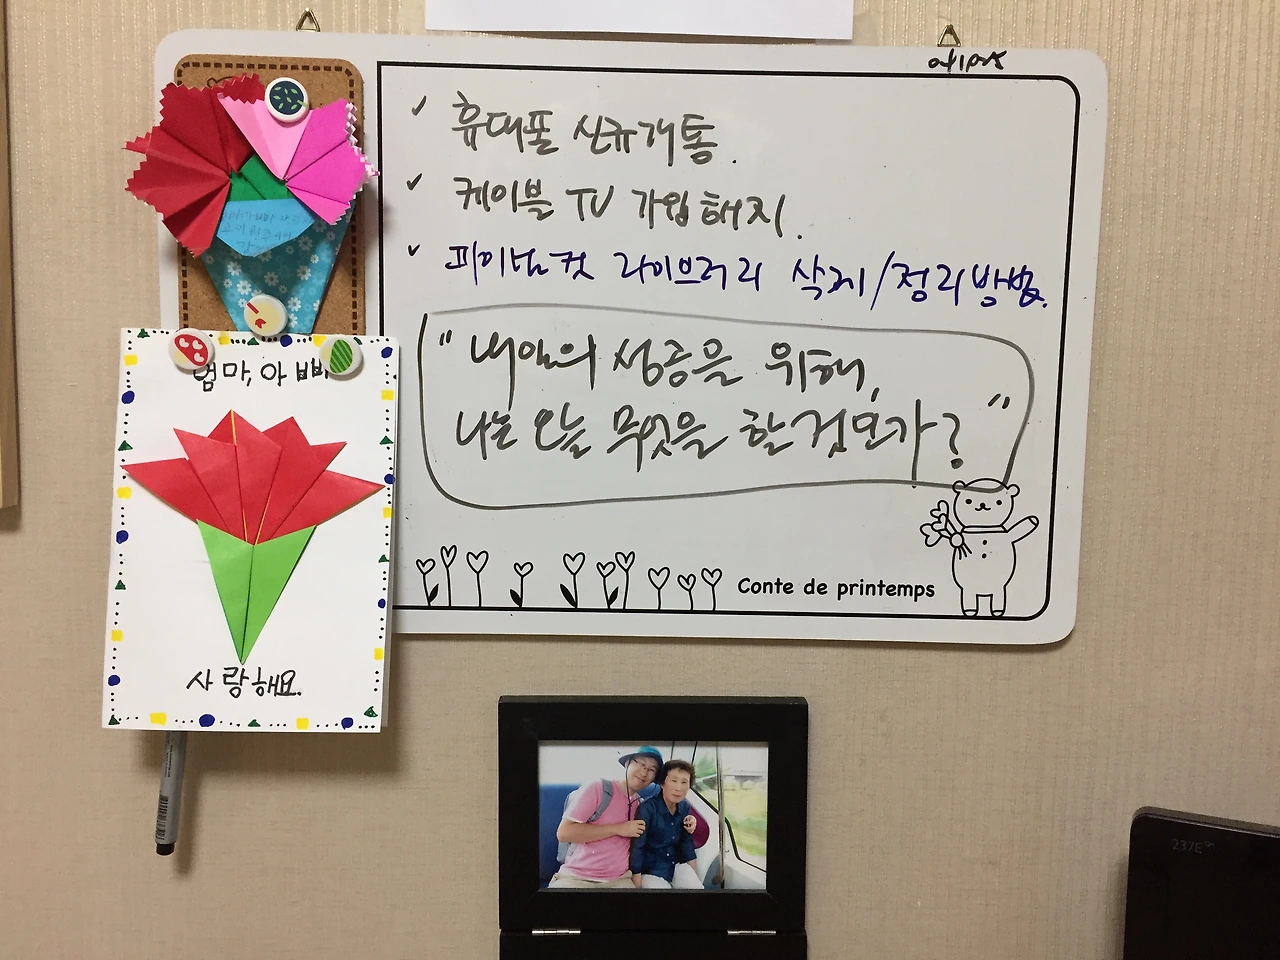 ✓ 휴대폰 신규개통.
✓ 케이블 TV 가입해지.
✓ 파이널컷 라이브러리 삭제/정리방법.
"내일의 성공을 위해,
나는 오늘 무엇을 할것인가?"
Conte de printemps
엄마, 아빠
사랑해요.
237E